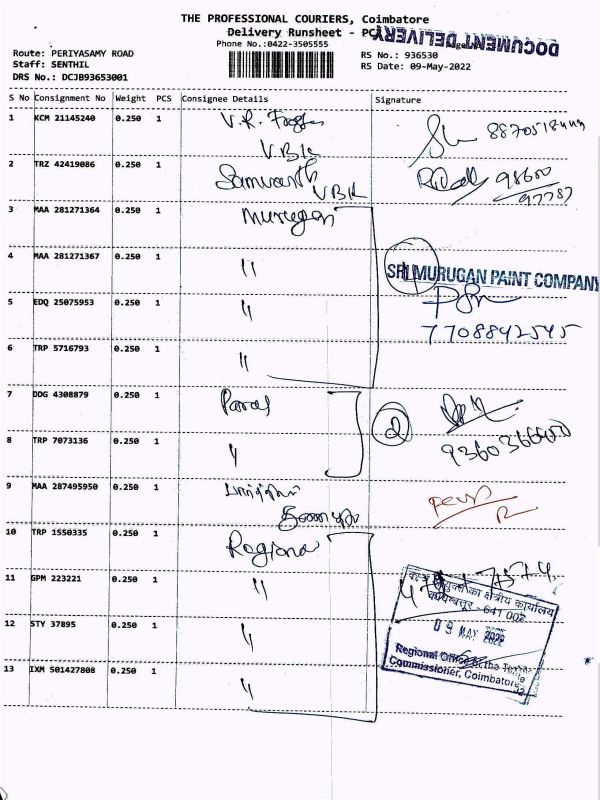 THE PROFESSIONAL COURIERS, Coimbatore
Delivery Runsheet - PC
DOCUMENT DELIVERY
Phone No.:0422-3505555
Route: PERIYASAMY ROAD
Staff: SENTHIL
DRS No.: DCJB93653001
RS No.: 936530
RS Date: 09-May-2022
S No Consignment No Weight PCS Consignee Details Signature
1 KCM 21145240 0.250 1 V.R.
VBK
2 TRZ 42419086 0.250 1 Samvarth VBK 98600
97787
3 MAA 281271364 0.250 1 Murugan
4 MAA 281271367 0.250 1 "
SRI MURUGAN PAINT COMPANY
5 EDQ 25075953 0.250 1 "
7708842545
6 TRP 5716793 0.250 1 "
7 DDG 4308879 0.250 1
2
8 TRP 7073136 0.250 1 "
9 MAA 287495950 0.250 1
10 TRP 1550335 0.250 1 Regional
11 GPM 223221 0.250 1 "
क्षेत्रीय कार्यालय
कोयम्बत्तूर - 641 002
12 STY 37895 0.250 1 "
09 MAY 2022
13 IXM 501427808 0.250 1 "
Regional Office of the Textile
Commissioner, Coimbatore